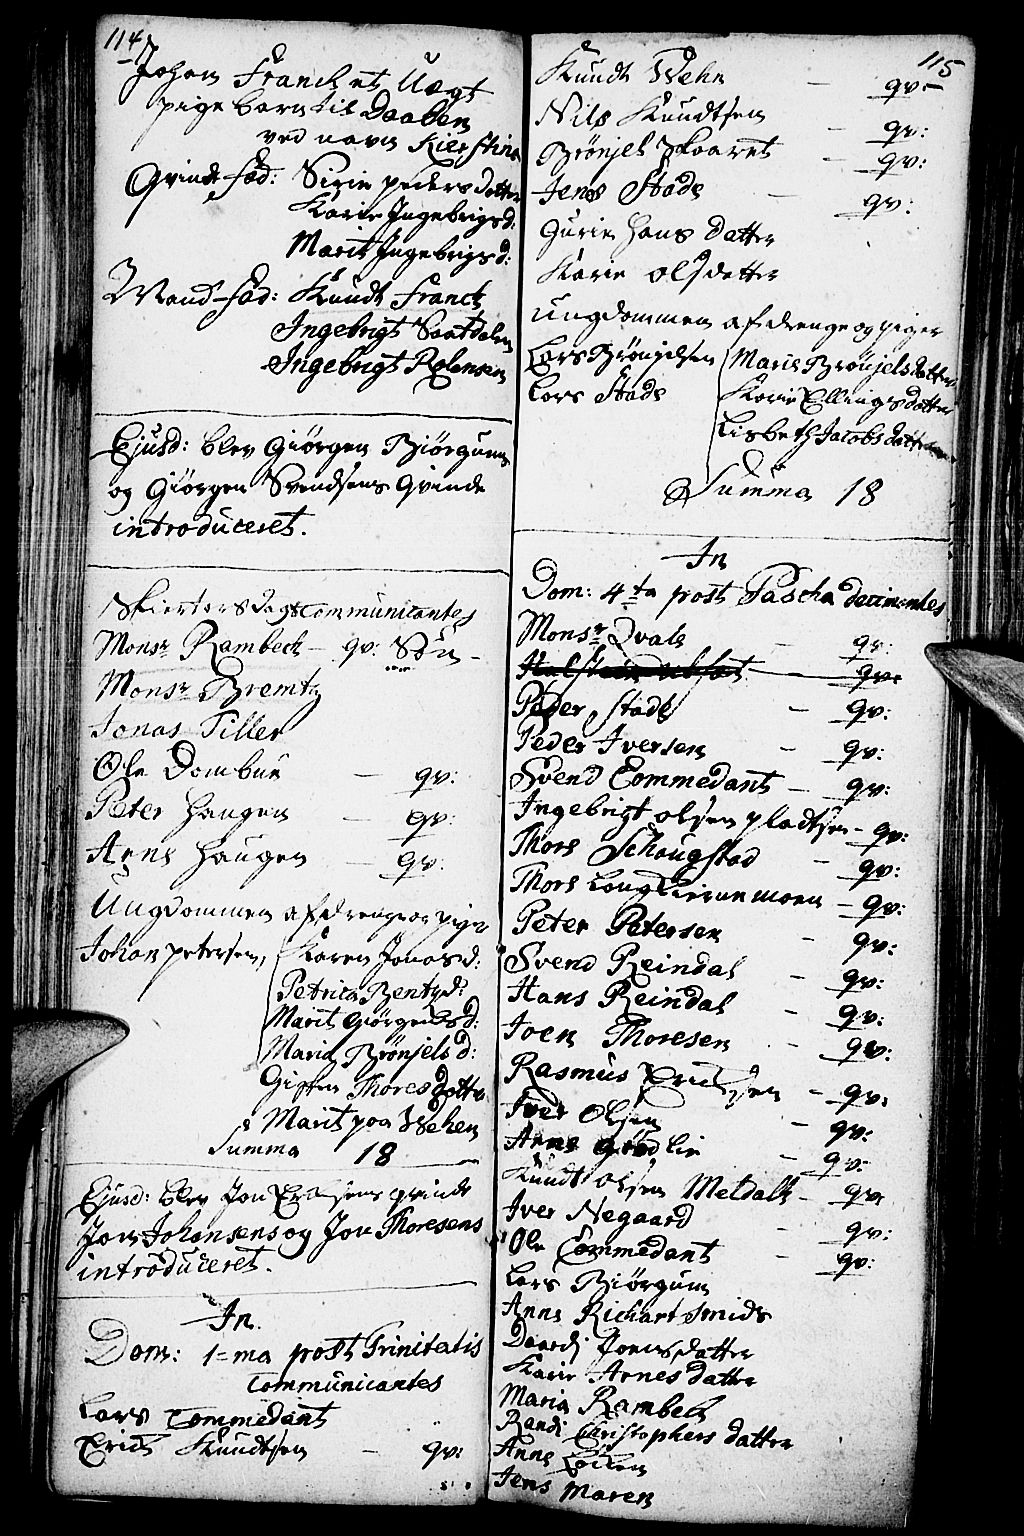 114
Johan Franck et Uægt
pige barn til Daaben
ved navn Kierstina
Qvinde-fad: Sirie peders datter
Karie Ingebrigsd:
Marit Ingebrigsd:
Mand-fad: Knudt Franck
Ingebrigt Saatdalen
Ingebrigt Rolensen
Ejusd: blev Giörgen Biörgum
og Giörgen Svendsens Qvinde
introduceret.
Skiertorsdags communicantes
Monsr Rambech - qv: Sön -
Monsr Bremtz
Jonas Piller
Ole Dombue - qv:
Peter Haugen - qv:
Arne Haugen - qv:
Ungdommen af drenge og piger
Johan petersen, Karen Jonasd:
Petrica Bentzd:
Marit Giörgensd:
Maria Brönjelsd:
Thores datter
Marit paa Wehen
Summa 18
Ejusd: blev Jon Ericksens qvinde
Jon Johansens og Jon Thoresens
introduceret.
In
Dom: 1=ma post Trinitatis
communicantes
Lars Commedant
Erich Knudtsen - qv:
115
Knudt Wehn - qv:
Nils Knudtsen - qv:
Brönjel Skoaret - qv:
Jens Stade - qv:
Gurie Hans datter
Karie Olsdatter
Ungdommen af drenge og piger
Lars Brönjelsen Marie Brönjelsdatter
Lars Stade Karie Ellingsdatter
Lisbeth Jacobsdatter
Summa 18
In
Dom: 4ta post Pascha
Monsr Dvale - qv:
qv:
Peder Stade - qv:
Peder Iversen - qv:
Svend Commedant - qv:
Ingebrigt Olsen pladsen - qv:
Thore Schougstad - qv:
Thore - qv:
Peter Petersen - qv:
Svend Reindal - qv:
Hans Reindal - qv:
Joen Thoresen - qv:
Rasmus Erichsen - qv:
Iver Olsen - qv:
Arne Grödlie - qv:
Knudt Olsen Meldalk - qv:
Iver Negaard - qv:
Ole Commedant - qv:
Lars Biörgum
Anne Richart Smids
Jonsdatter
Karie Arnesdatter
Maria Rambech
Randi Christophers datter
Anne
Jens Maren